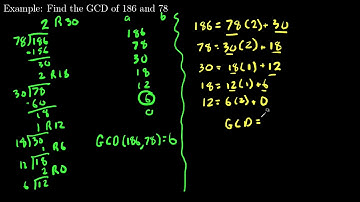 Example: Find the GCD of 186 and 78
2 R30
78)186
-156
30
2 R18
30)78
-60
18
1 R12
18)30
1 R6
12)18
2 R0
6)12
a b
186
78
30
18
12
6
0
GCD(186,78)=6
186 = 78(2)+30
78 = 30(2)+18
30 = 18(1)+12
18 = 12(1)+6
12 = 6(2)+0
GCD=